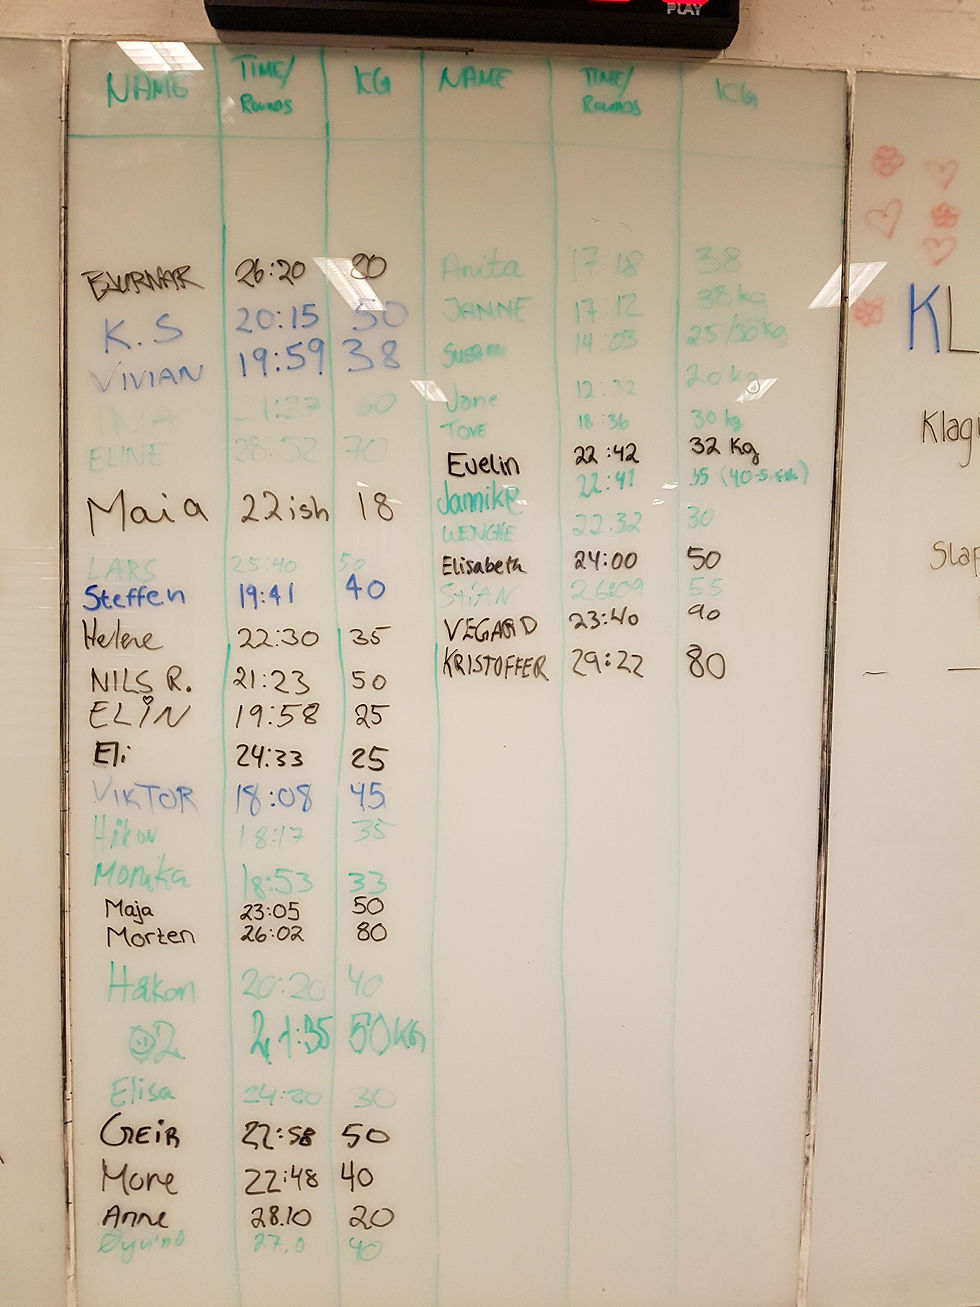 PLAY
NAME TIME/ KG NAME TIME/ KG
ROUNDS ROUNDS
BJURNAR 26:20 80
K.S 20:15 50
VIVIAN 19:59 38
INA 21:27 60
ELINE 28:52 70
Maia 22ish 18
LARS 25:40 50
Steffen 19:41 40
Helene 22:30 35
NILS R. 21:23 50
ELIN 19:58 25
Eli 24:33 25
VIKTOR 18:08 45
Håkon 18:17 35
Monika 18:53 33
Maja 23:05 50
Morten 26:02 80
Håkon 20:20 40
2 21:35 50KG
Elisa 24:20 30
GEIR 22:58 50
Mone 22:48 40
Anne 28.10 20
Øyvind 27,0 40
Anita 17:18 38
JANNE 17:12 38kg
Susann 14:03 25/30kg
Jane 12:32 20 kg
TOVE 18:36 30 kg
Evelin 22:42 32 Kg
Jannike 22:41 35 (40
WENCHE 22:32 30
Elisabeth 24:00 50
STIAN 26:09 55
VEGARD 23:40 90
KRISTOFFER 29:22 80
KL
Klag
Slap